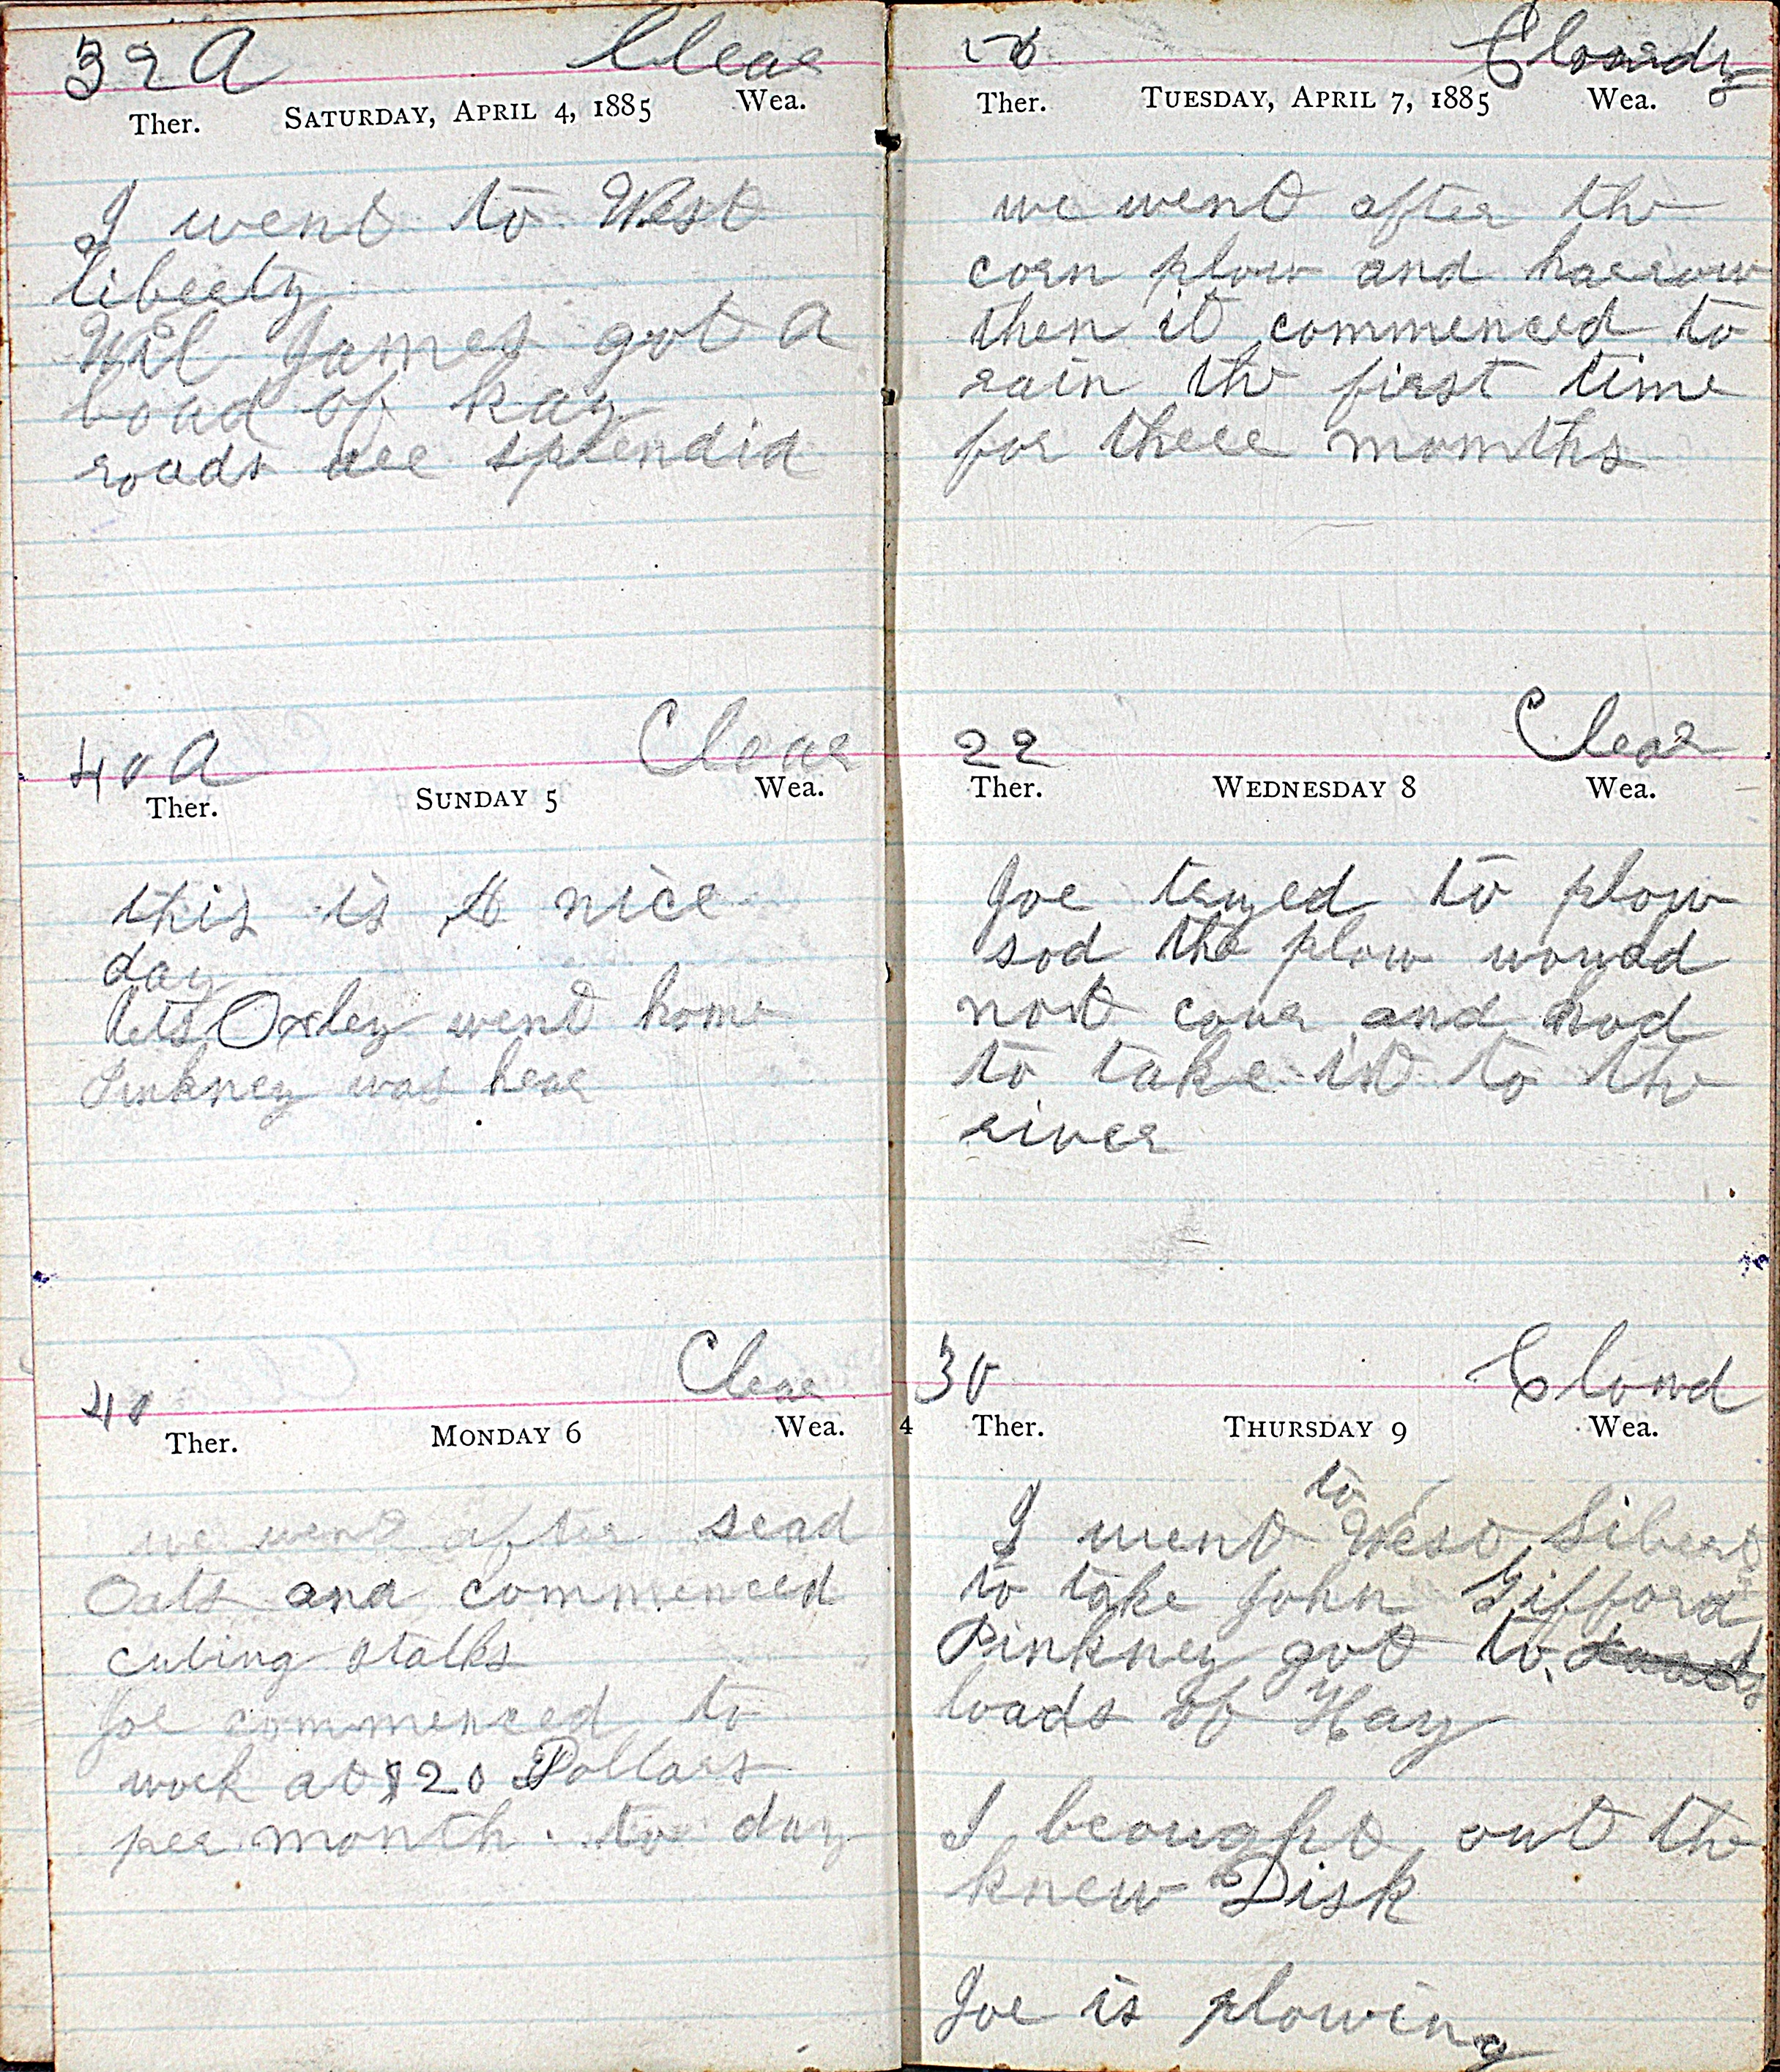 32 A Clear
Ther. SATURDAY, APRIL 4, 1885 Wea.
I went to West
liberty
Wil James got A
load of hay
roads are splendid
40 A Clear
Ther. SUNDAY 5 Wea.
this is A nice
day
Oxley went home
Pinkney was here
40 Clear
Ther. MONDAY 6 Wea.
we went after sead
Oats and commenced
cuting stalks
Joe commenced to
work at $20 Dollars
per month to day
Cloudy
Ther. TUESDAY, APRIL 7, 1885 Wea.
we went after the
corn plow and harrow
then it commenced to
rain the first time
for three months
22 Clear
Ther. WEDNESDAY 8 Wea.
Joe tryed to plow
sod the plow
not and had
to take it to the
river
30 Cloud
4 Ther. THURSDAY 9 Wea.
to
I went West Libert
to take John Gifford
Pinkney got to
loads of Hay
I brought out the
knew Disk
Joe is plowing